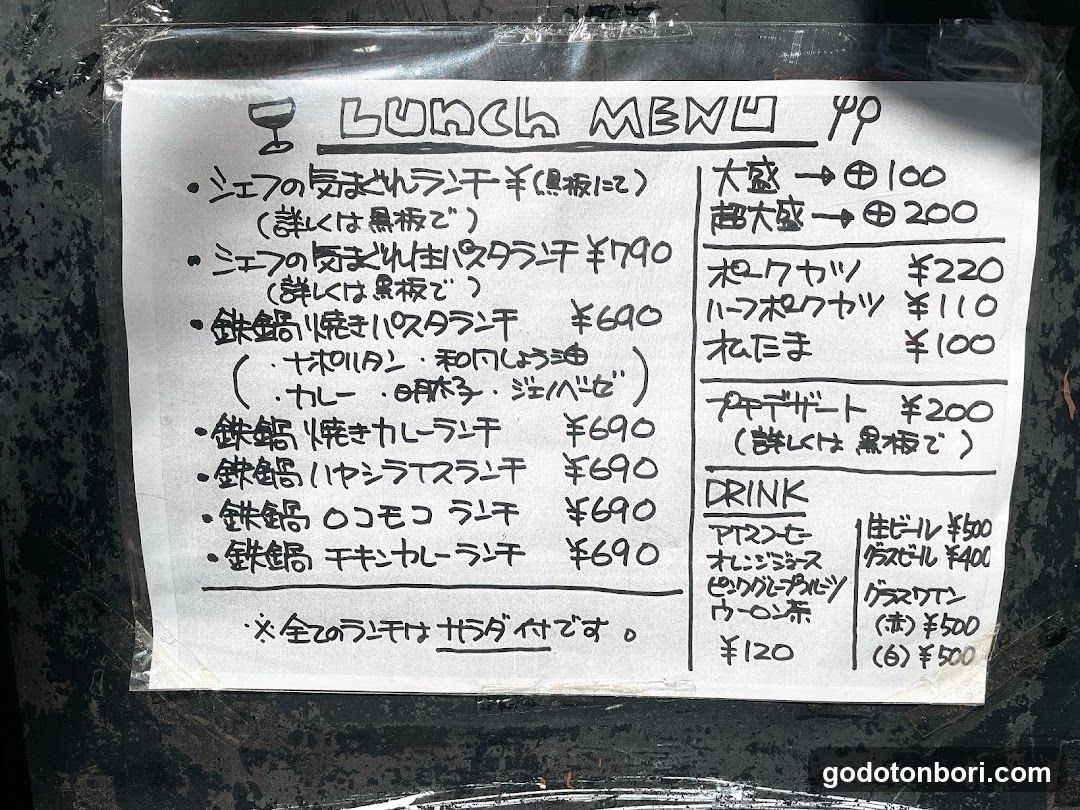 LUNCH MENU
・シェフの気まぐれランチ ¥(黒板にて)
(詳しくは黒板で)
・シェフの気まぐれ生パスタランチ ¥790
(詳しくは黒板で)
・鉄鍋焼きパスタランチ ¥690
(・ナポリタン ・和風しょう油
・カレー ・明太子 ・ジェノベーゼ)
・鉄鍋焼きカレーランチ ¥690
・鉄鍋ハヤシライスランチ ¥690
・鉄鍋 ロコモコ ランチ ¥690
・鉄鍋 チキンカレーランチ ¥690
※全てのランチは サラダ付です。
大盛→⊕100
超大盛→⊕200
ポークカツ ¥220
ハーフポークカツ ¥110
温たま ¥100
プチデザート ¥200
(詳しくは黒板で)
DRINK
アイスコーヒー
オレンジジュース
ピンクグレープフルーツ
ウーロン茶
¥120
生ビール ¥500
グラスビール ¥400
グラスワイン
(赤) ¥500
(白) ¥500
godotonbori.com